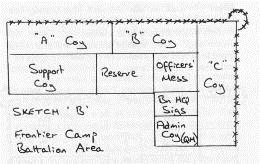 "A" Coy
"B" Coy
"C" Coy
Support Coy
Reserve
Officers' Mess
Bn HQ
Sigs
Admin
Coy (QM)
SKETCH 'B'
Frontier Camp
Battalion Area